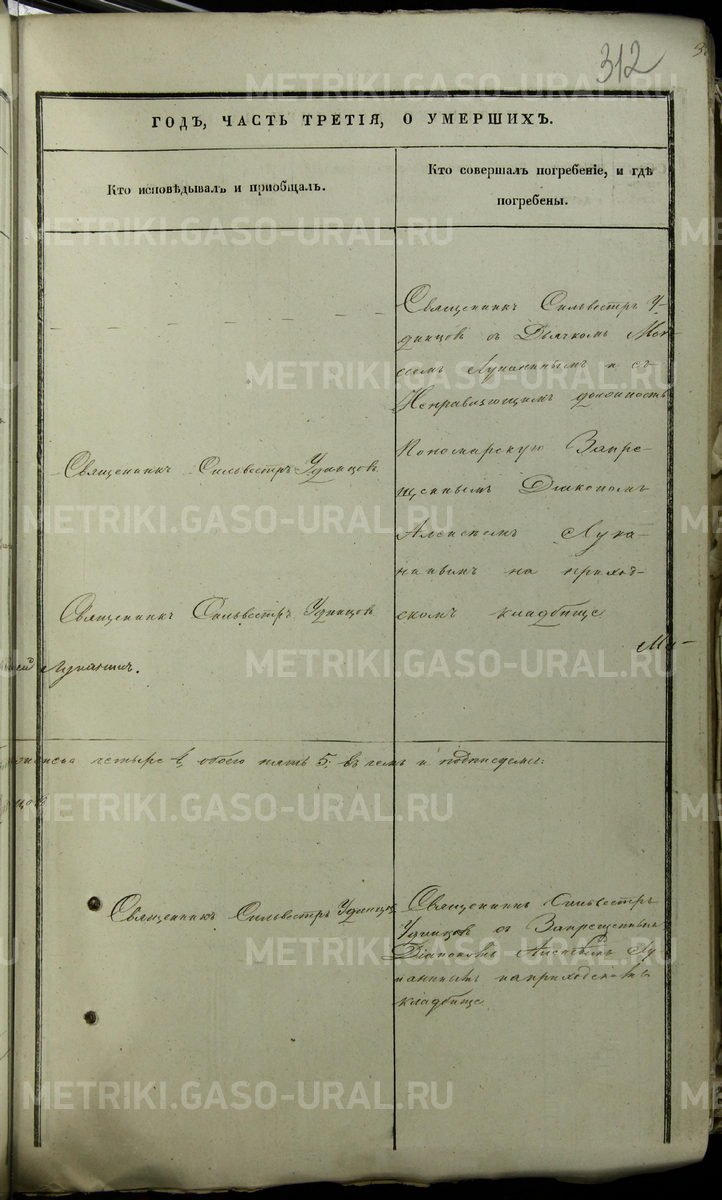 312
ГОДЪ, ЧАСТЬ ТРЕТІЯ, О УМЕРШИХЪ.
Кто исповѣдывалъ и пріобщалъ.
Кто совершалъ погребеніе, и гдѣ
погребены.
Священникъ Сильвестръ У-
динцовъ съ Дьячкомъ Мои-
сеемъ Луканинымъ и съ
Исправляющимъ должность
Священникъ Сильвестръ Удинцовъ
Пономарскую Запре-
щеннымъ Діакономъ
Алексѣемъ Лука-
нинымъ на приход-
Священникъ Сильвестръ Удинцовъ
скомъ кладбище
Мо-
Луканин.
четыре 4, обоего пять 5. въ чемъ и подписуемся:
Священникъ Сильвестръ Удинцовъ
Священникъ Сильвестръ
Удинцовъ съ Запрещеннымъ
Діакономъ Лу-
канинымъ на приходскомъ
кладбище
METRIKI.GASO-URAL.RU